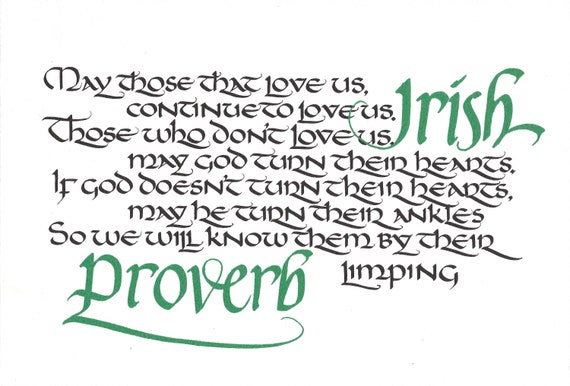 May those that love us,
continue to love us. Irish
Those who don't love us.
may god turn their hearts.
If god doesn't turn their hearts,
may he turn their ankles
So we will know them by their
limping
Proverb